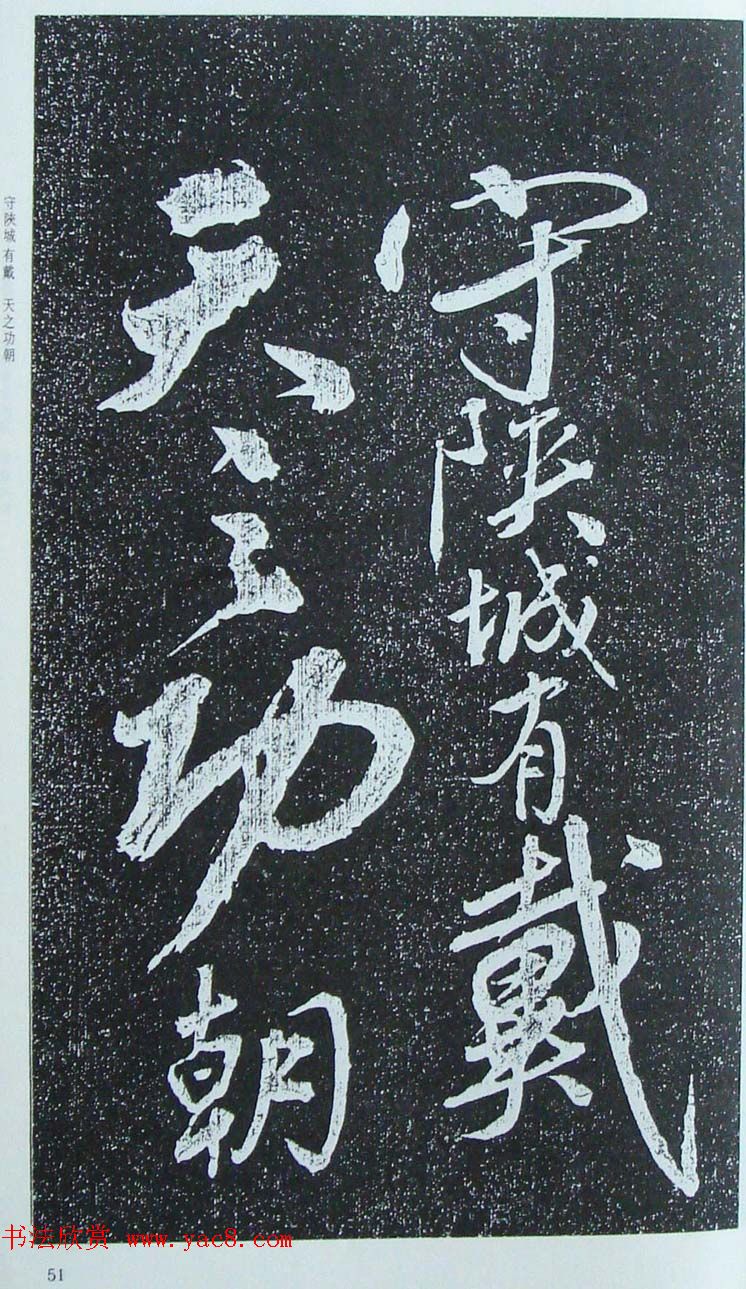 守陕城有戴
天之功朝
守陕城 有戴 天之功朝
书法欣赏 www.yac8.com
51